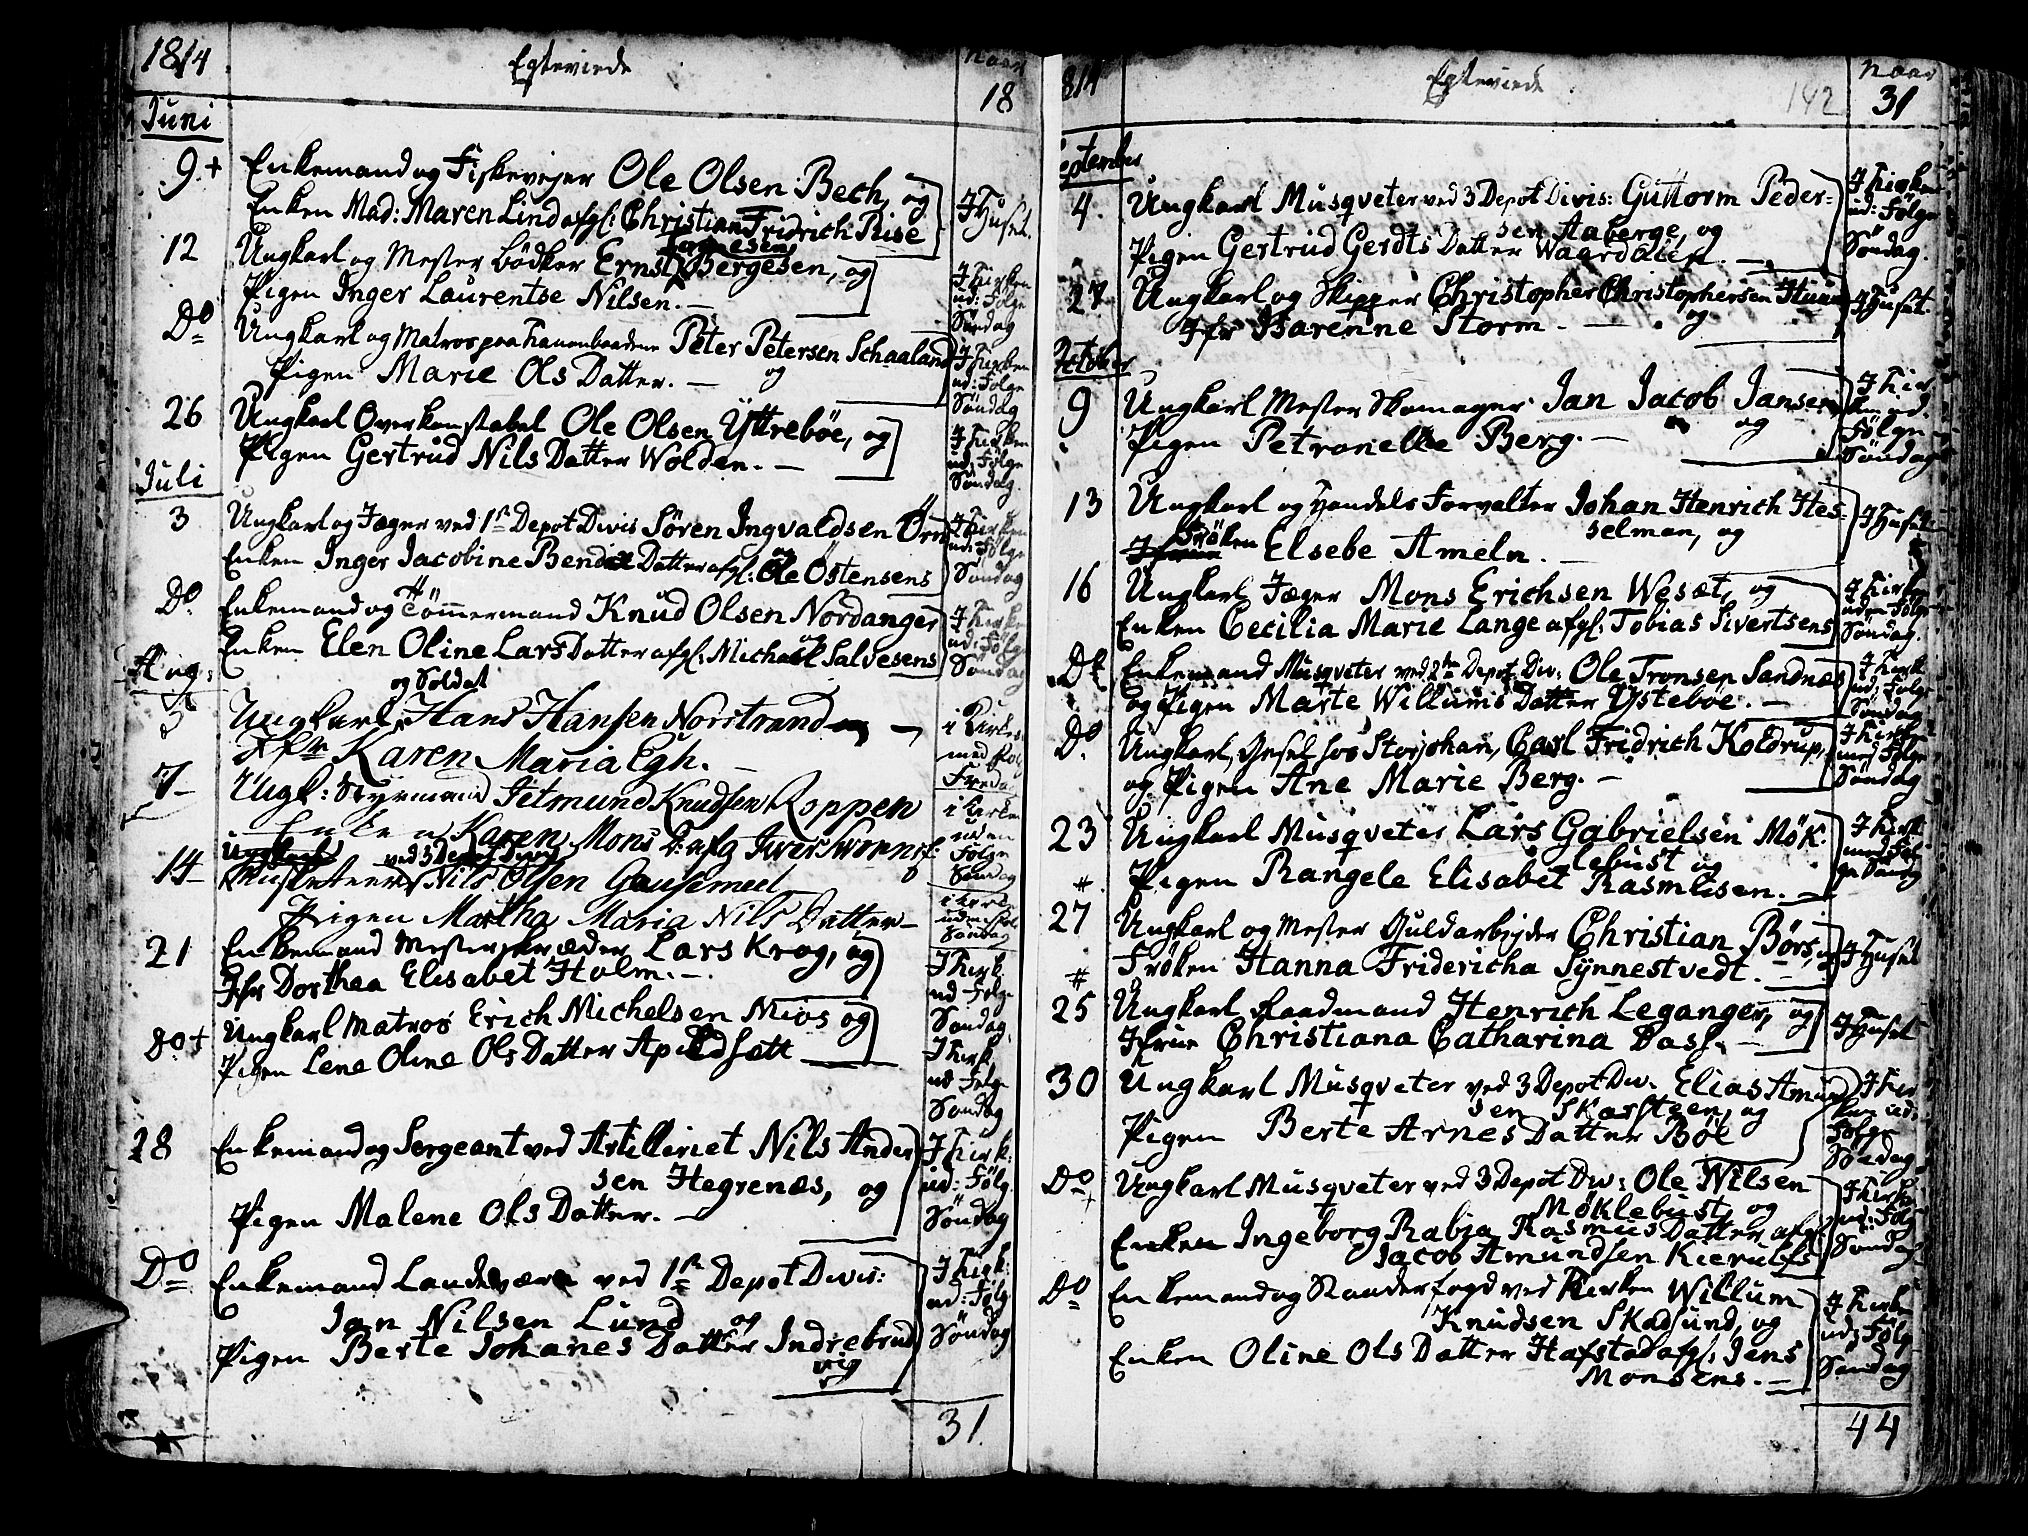 1814
Egteviede
18
Juni
9+ Enkemand og Fiskevejer Ole Olsen Bech, og
Enken Mad: Maren Lind afgl: Christian Fridrich Riise
I Huset.
12 Ungkarl og Mester Bødker Ernst Bergesen, og
Pigen Inger Laurentse Nilsen. –
I Kirken
ud: Følge
Søndag
Do Ungkarl og Matros paa Kanonbaadene Peter Petersen Schaaland
og
Pigen Marie Ols Datter. –
I Kirken
ud: Følge
Søndag
26 Ungkarl Overkonstabel Ole Olsen Yttrebøe, og
Pigen Gertrud Nils Datter Wolden. –
I Kirken
ud: Følge
Søndag
Juli
3 Ungkarl og Jæger ved 1ste Depot Divis Søren Ingvaldsen Örn
og
Enken Inger Jacobine Bends Datter afgl: Ole Östensens
I Kirken
ud: Følge
Søndag
Do. Enkemand og Tömmermand Knud Olsen Nordanger
og
Enken Elen Oline Lars Datter afgl: Michael Salvesens
I Kirken
ud: Følge
Søndag
Aug:
og Soldat
5 Ungkarl Hans Hansen Norstrand og –
Jfr Karen Maria Egh. –
i Kirken
med Følg
Fredag
7– Ungk: Styrmand Jetmund Knudsen Roppen
Enken Karen Mons D: afg Iver
i Kirken
uden
Følge
Søndag
ved 3 Depot Divis
14– Musketeer Nils Olsen Gausemeel
Pigen Martha Maria Nils Datter –
i Kirk
uden Føl
Søndag
21 Enkemand Mester Skræder Lars Krog, og
Jfr Dorthea Elisabet Holm. –
I Kirk
ud Følge
Søndag.
do+ Ungkarl Matros Erich Michelsen Mios og
Pigen Lene Oline Ols Datter Apildsætt
I Kirk
ud Følge
Søndag
28 Enkemand og Sergeant ved Artilleriet Nils Ander
sen Hegrenæs, og
Pigen Malene Ols Datter. –
I Kirk:
ud: Følg.
Søndag
Do Enkemand Landeværn ved 1ste Depot Divis:
Jan Nilsen Lund og
Pigen Berte Johanes Datter Indrebrud
vig
I Kirk:
ud: Følg
Søndag
31.
814
Egteviede
142
Naar
31
September
4. Ungkarl Musqveter ved 3 Depot Divis: Guttorm Peder=
sen Aaberge, og
Pigen Gertrud Gerdts Datter Waardalen. –
I Kirken
ud: Følge
Søndag.
27 Ungkarl og Skipper Christopher Christophersen Huun
og
Jfr Barenne Storm. –
I Huset.
October
9 Ungkarl Mester Skomager Jan Jacob Jansen
og
Pigen Petronelle Berg. –
I Kir
ken ud.
Følge
Søndag
13 Ungkarl og Handels Forvalter Johan Henrich Hes=
selman, og
Frøken Elsebe Ameln. –
I Huset
16 Ungkarl Jæger Mons Erichsen Wesæt, og
Enken Cecilia Marie Lange afgl: Tobias Sivertsens
I Kirken
uden Følge
Søndag.
Do Enkemand Musqveter ved 2den Depot Div: Ole Tronsen Sandnæs
og Pigen Marte Willums Datter Ystebøe. –
I Kirk
ud: Følge
Søndag
Do. Ungkarl, Svesel hos Storjohan, Carl Fridrich Koldrup,
og Pigen Ane Marie Berg. –
I Kirken
med Følge
Søndag
23 Ungkarl Musqveter Lars Gabrielsen Møk
lebust og
# Pigen Rangele Elisabet Rasmusen. –
I Kirk
med Føl
ge Søndag
27 Ungkarl og Mester Guldarbejder Christian Börs, og
# Frøken Hanna Fridericha Synnestvedt. –
I Huset
25 Ungkarl Raadmand Henrich Leganger, og
Jfrue Christiana Catharina Dass. –
I Huset
30 Ungkarl Musqveter ved 3 Depot Div. Elias Amund
sen Skarsteen, og
Pigen Berte Arnes Datter Böe
I Kir
ken ud:
Følge
Søndag
Do+ Ungkarl Musqveter ved 3 Depot Div: Ole Nilsen
Møklebust, og
Enken Ingeborg Rabja Rasmus Datter afgl:
Jacob Amundsen Kierulfs
I Kirk
ud: Følg
Søndag
Do Enkemand og Standerfogd ved Kirken Willum
Knudsen Skadsund, og
Enken Oline Ols Datter Hafstad afgl: Jens
Monsens. –
I Kirken
ud: Følg
Søndag
44